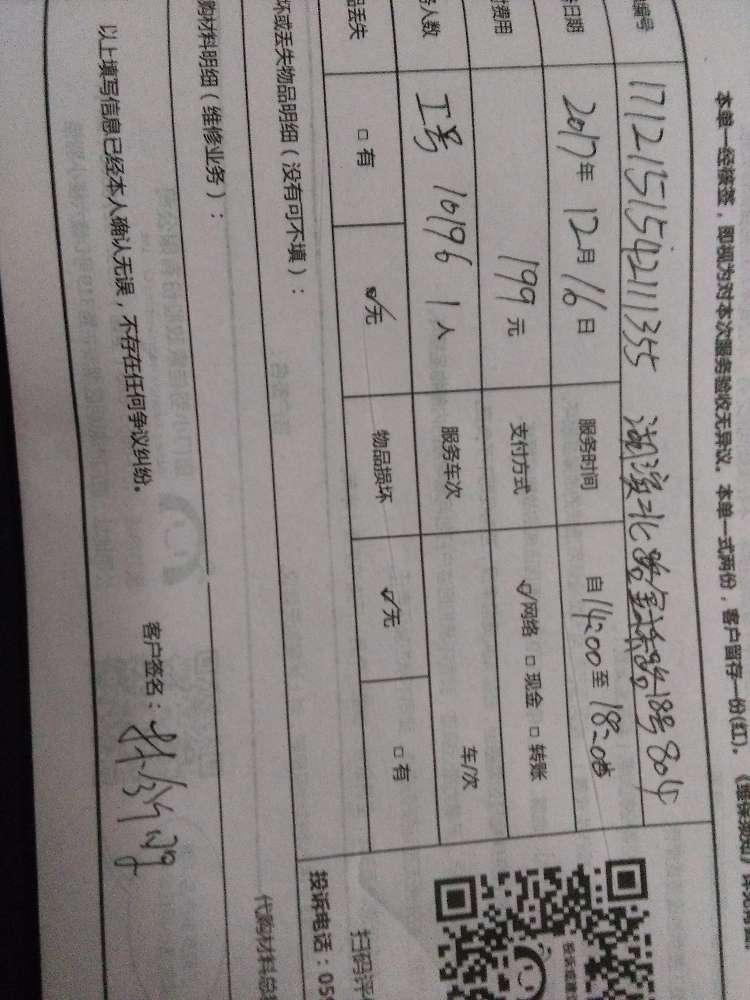 本单一经接签，即视为对本次服务验收无异议。本单一式两份，客户留存一份(红)。
编号 1712151542111355 湖滨北路金祥路18号804
日期 2017年12月16日 服务时间 自14:00至18:00
费用 199元 支付方式 ☑网络 □现金 □转账
人数 工号 10196 1人 服务车次 车次
丢失 □有 ☑无 物品损坏 ☑无 □有
坏或丢失物品明细（没有可不填）：
购材料明细（维修业务）：
代购材料总
以上填写信息已经本人确认无误，不存在任何争议纠纷。
客户签名：
扫码评
投诉电话：05